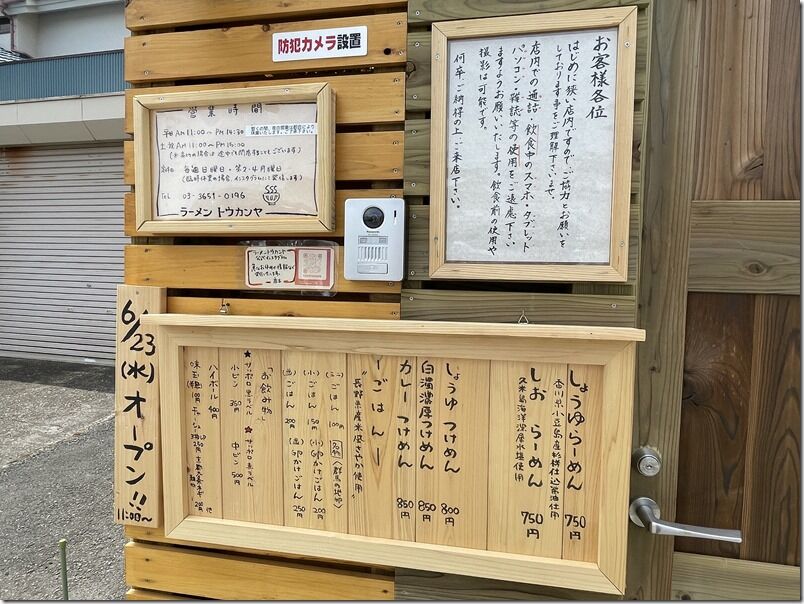 防犯カメラ設置
お客様各位
はじめに狭い店内ですので、ご協力とお願いを
しております事をご理解下さいませ。
店内での通話、飲食中のスマホ・タブレット
パソコン・雑誌等の使用をご遠慮下さい
ますようお願いいたします。飲食前の使用や
撮影は可能です。
何卒ご納得の上ご来店下さい。
営業時間
平日 AM 11:00 〜 PM 14:30
土祝 AM 11:00 〜 PM 15:00
毎週日曜日・第2・4月曜日
(臨時休業の場合、インスタグラムにて発信します)
Tel 03-3651-0196
ラーメン トウカンヤ
ラーメントウカンヤ
公式インスタグラム
6/23(水)オープン!!
11:00〜
しょうゆらーめん 750円
香川県小豆島産杉樽仕込醤油使用
しお らーめん 750円
久米島海洋深層水塩使用
しょうゆ つけめん 800円
白濁濃厚つけめん 850円
カレー つけめん 850円
ーごはんー
長野県産米風さやか使用
(ミニ)ごはん 100円
(小)ごはん 150円
(並)ごはん 200円
名物
(小)TKPかけごはん 200円
(並)TKPかけごはん 250円
「お飲み物」
★サッポロ黒ラベル
小ビン 350円
★サッポロ赤ラベル
中ビン 500円
ハイボール 400円
味玉